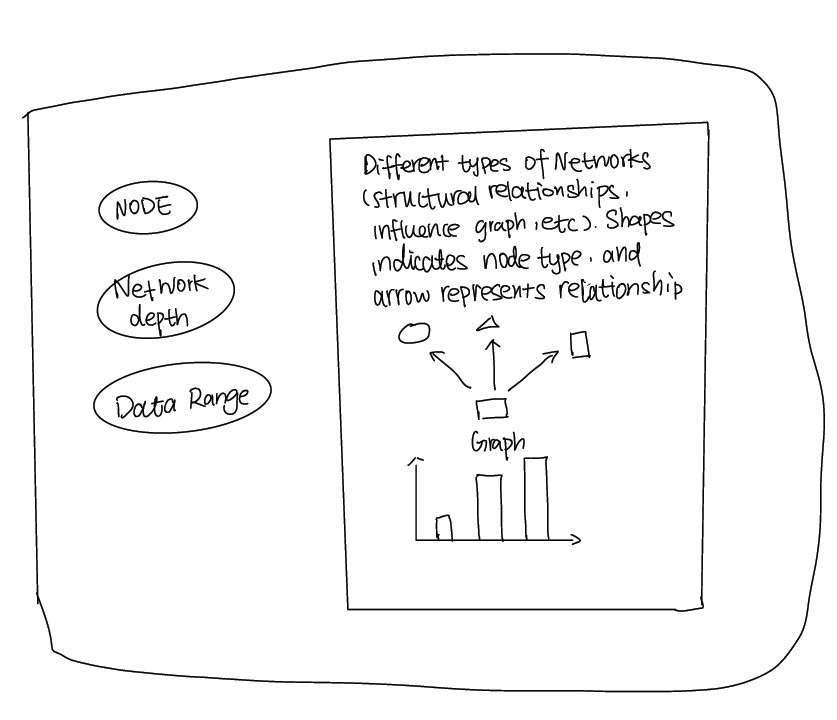 NODE
Network
depth
Data Range
Different types of Networks
(structural relationships,
influence graph, etc). Shapes
indicates node type, and
arrow represents relationship
Graph